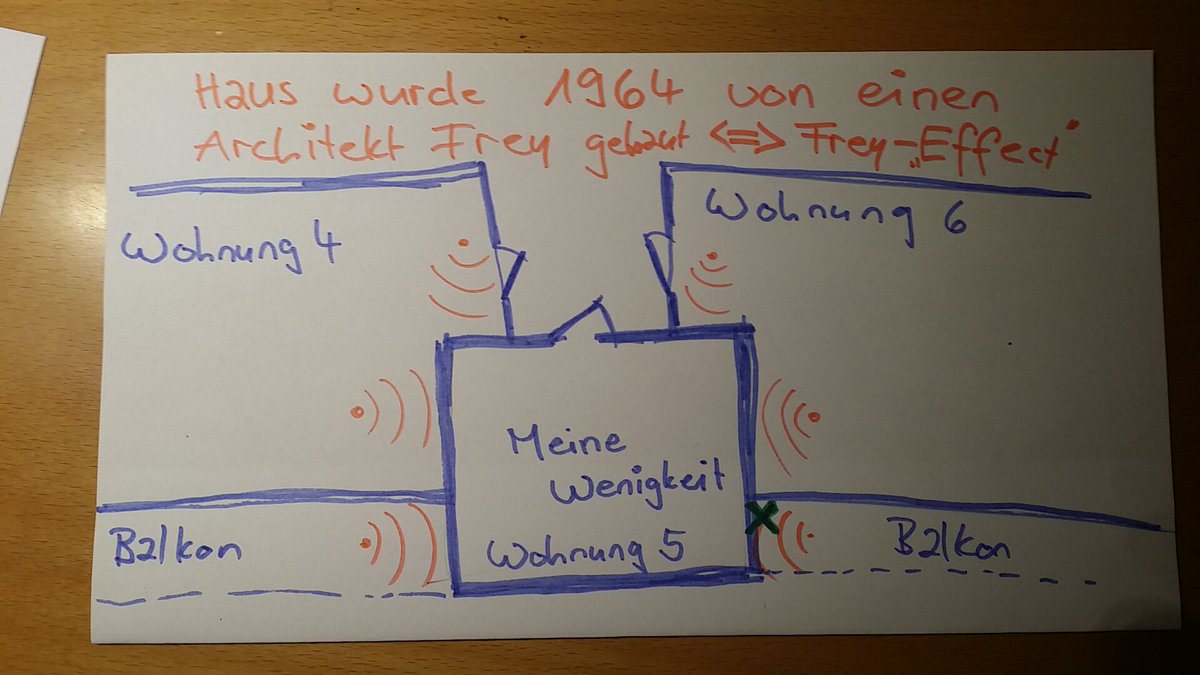 Haus wurde 1964 von einen
Architekt Frey gebaut <=> Frey-"Effect"
Wohnung 4
Wohnung 6
Meine
Wenigkeit
Wohnung 5
Balkon
Balkon